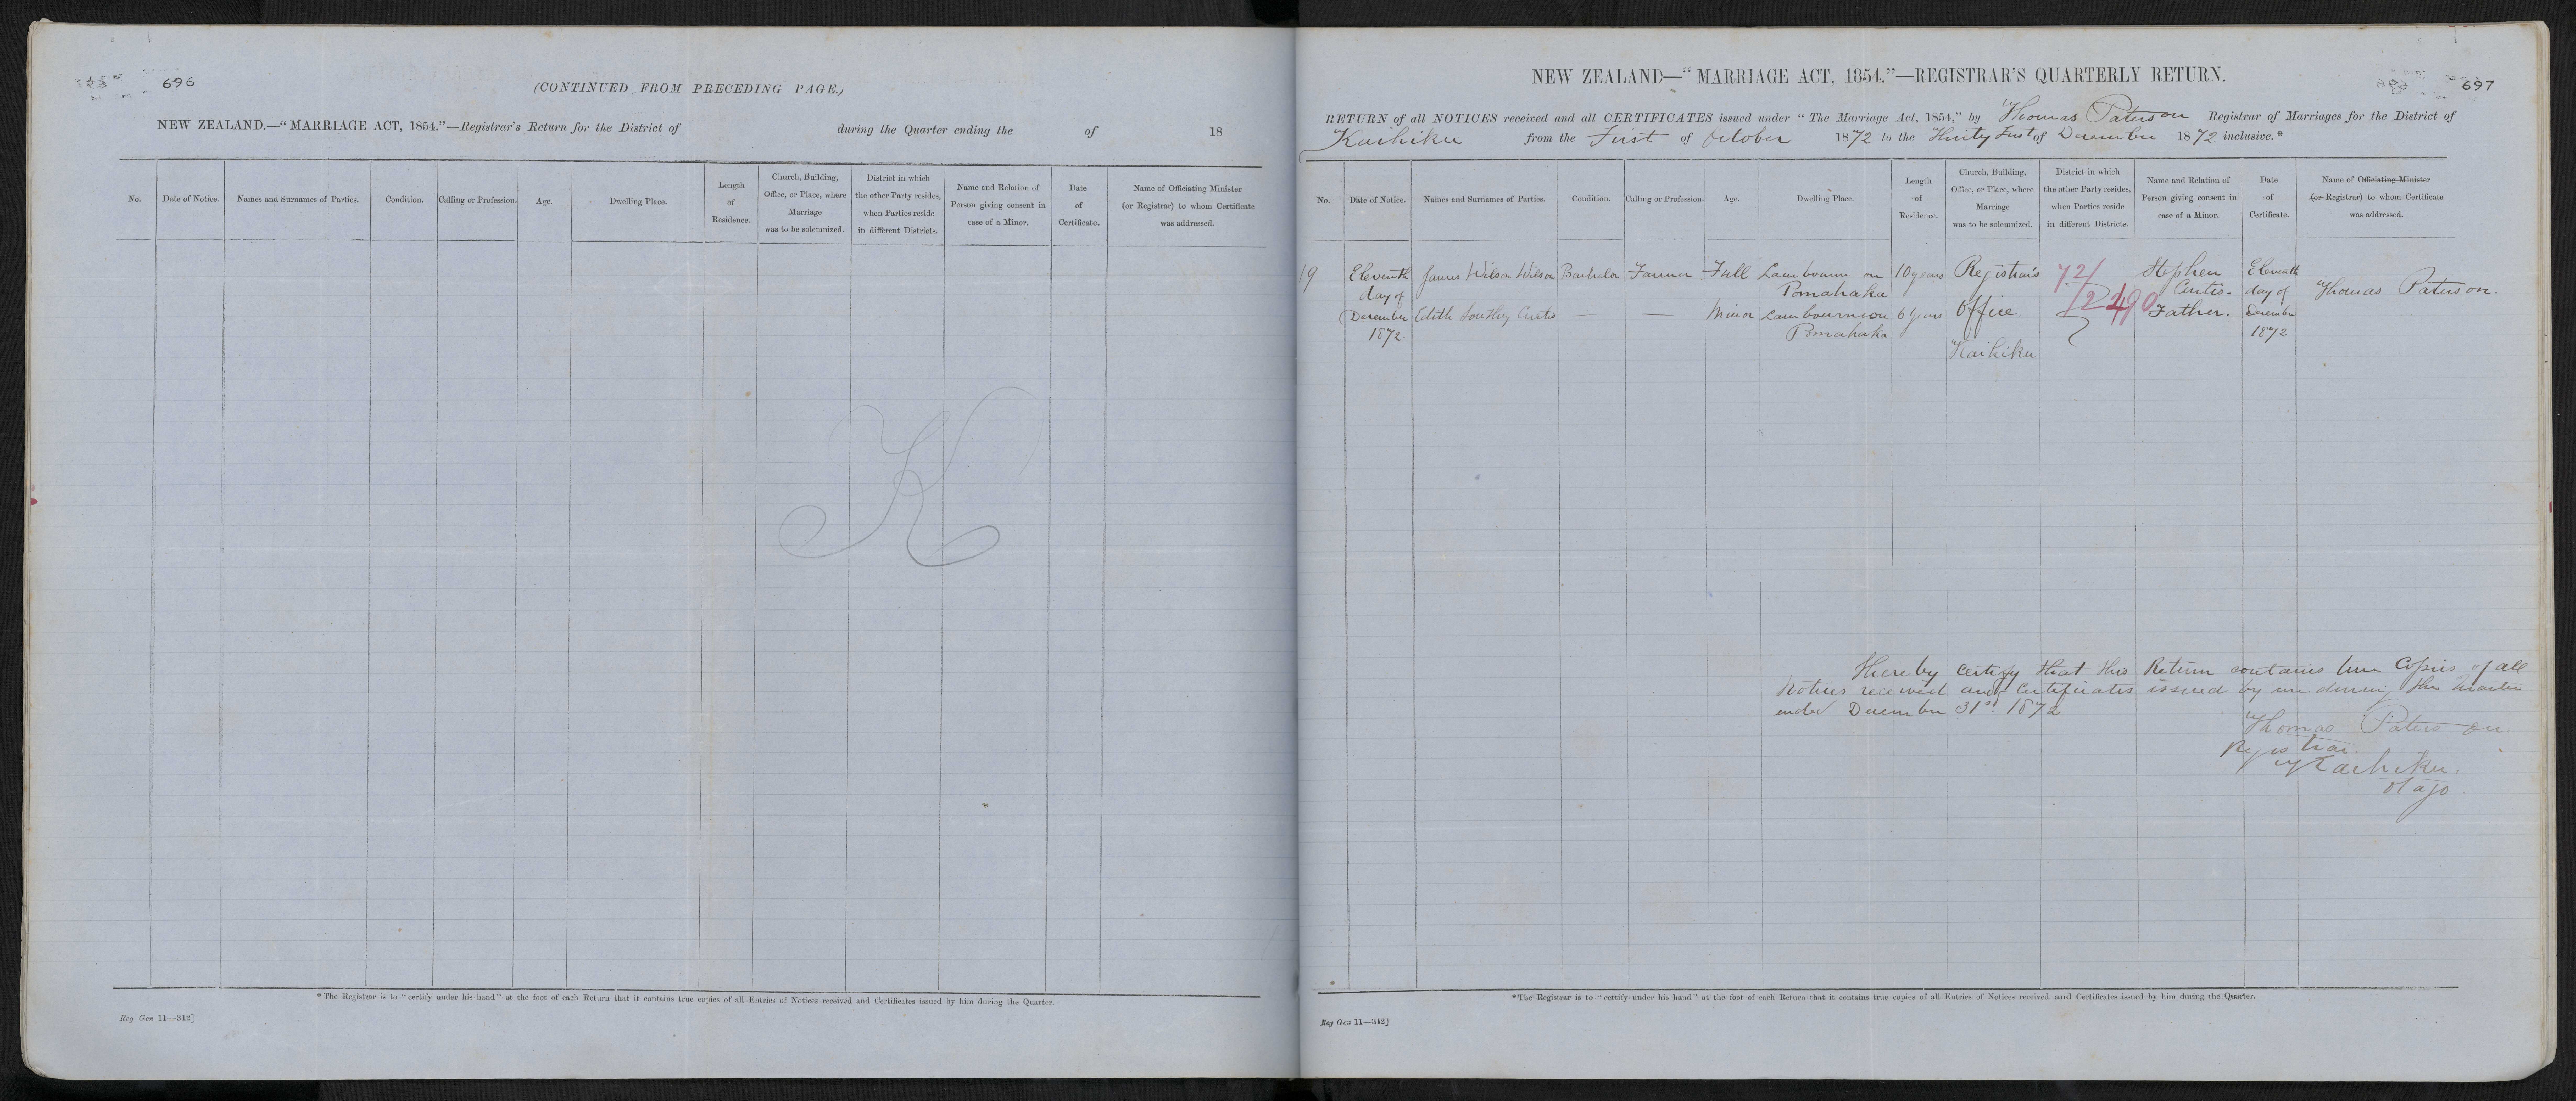 696
(CONTINUED FROM PRECEDING PAGE.)
NEW ZEALAND.—"MARRIAGE ACT, 1854."—Registrar's Return for the District of during the Quarter ending the of 18
No.
Date of Notice.
Names and Surnames of Parties.
Condition.
Calling or Profession.
Age.
Dwelling Place.
Length
of
Residence.
Church, Building,
Office, or Place, where
Marriage
was to be solemnized.
District in which
the other Party resides,
when Parties reside
in different Districts.
Name and Relation of
Person giving consent in
case of a Minor.
Date
of
Certificate.
Name of Officiating Minister
(or Registrar) to whom Certificate
was addressed.
K
*The Registrar is to "certify under his hand" at the foot of each Return that it contains true copies of all Entries of Notices received and Certificates issued by him during the Quarter.
Reg Gen 11—312]
697
NEW ZEALAND—"MARRIAGE ACT, 1854."—REGISTRAR'S QUARTERLY RETURN.
RETURN of all NOTICES received and all CERTIFICATES issued under "The Marriage Act, 1854," by Thomas Paterson Registrar of Marriages for the District of
Kaihiku from the First of October 1872 to the Thirty First of December 1872 inclusive.*
No.
Date of Notice.
Names and Surnames of Parties.
Condition.
Calling or Profession.
Age.
Dwelling Place.
Length
of
Residence.
Church, Building,
Office, or Place, where
Marriage
was to be solemnized.
District in which
the other Party resides,
when Parties reside
in different Districts.
Name and Relation of
Person giving consent in
case of a Minor.
Date
of
Certificate.
Name of Officiating Minister
(or Registrar) to whom Certificate
was addressed.
19
Eleventh
day of
December
1872
James Wilson Wilson
Edith Southey Curtis
Bachelor
—
Farmer
—
Full
Minor
Lambourn on
Pomahaka
Lambourn on
Pomahaka
10 years
6 years
Registrar's
Office
Kaihiku
72/
2490
Stephen
Curtis.
Father.
Eleventh
day of
December
1872
Thomas Paterson.
I hereby certify that this Return contains true Copies of all
Notices received and Certificates issued by me during the Quarter
ended December 31st. 1872
Thomas Paterson
Registrar
Kaihiku.
Otago.
*The Registrar is to "certify under his hand" at the foot of each Return that it contains true copies of all Entries of Notices received and Certificates issued by him during the Quarter.
Reg Gen 11—312]